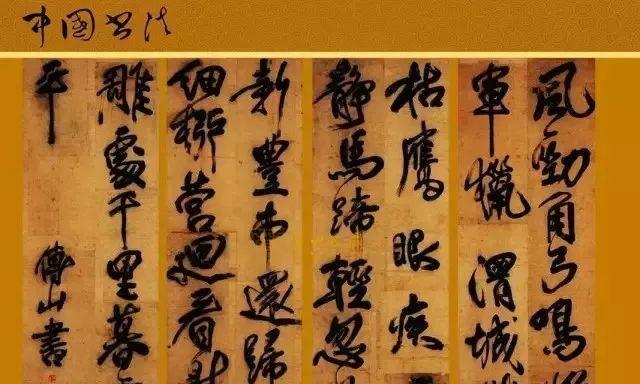 中国书法
風勁角弓鳴
軍獵渭城
枯鷹眼疾
靜馬蹄輕忽
新豐市還歸
細柳營迴看
雕處千里暮
平
傅山書